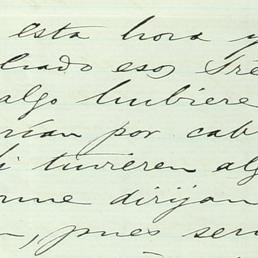 esta hora y
hado esos Tre
algo hubiere
rían por cab
i tuvieren alg
rme dirijan
n, pues ser